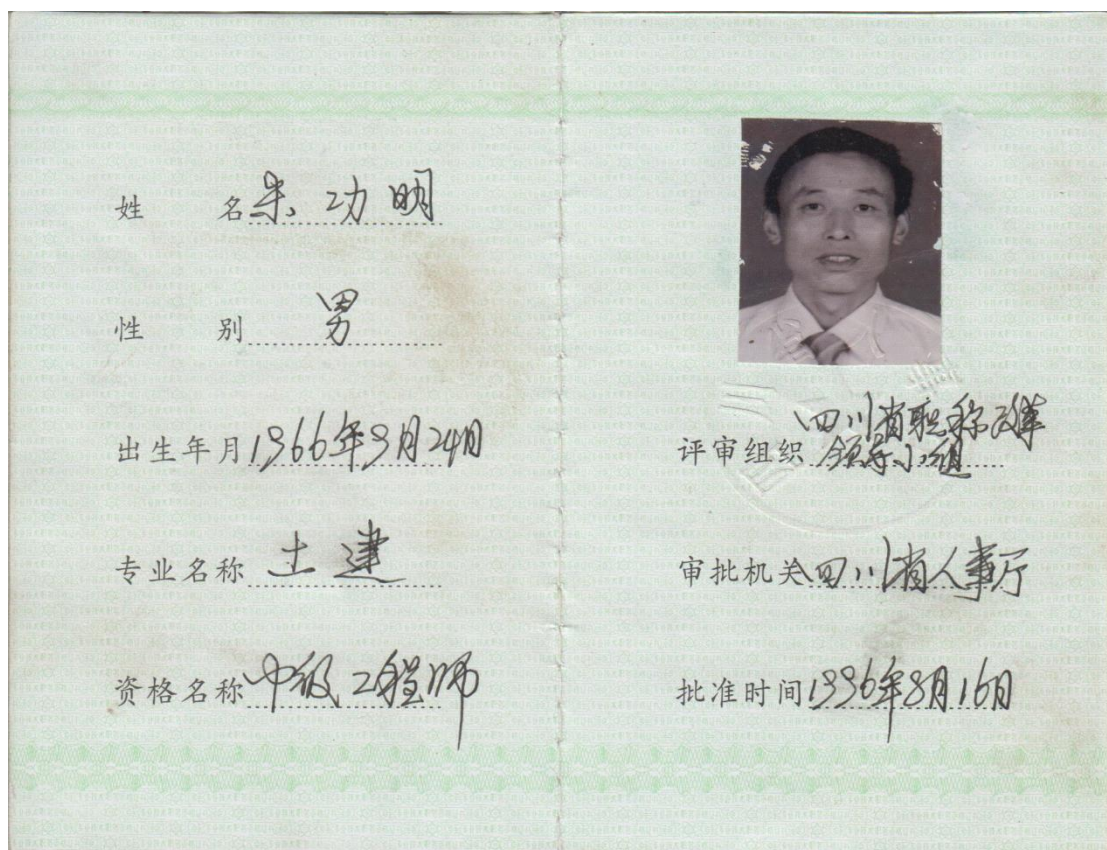 姓 名 朱功明
性 别 男
出生年月 1966年9月24日
专业名称 土建
资格名称 中级工程师
评审组织 四川省职称改革
领导小组
审批机关 四川省人事厅
批准时间 1996年8月16日